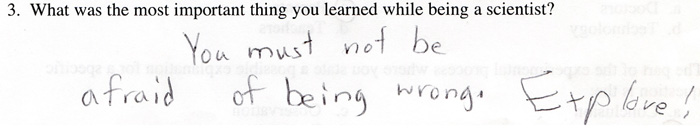 3. What was the most important thing you learned while being a scientist?
You must not be
afraid of being wrong. Explore!